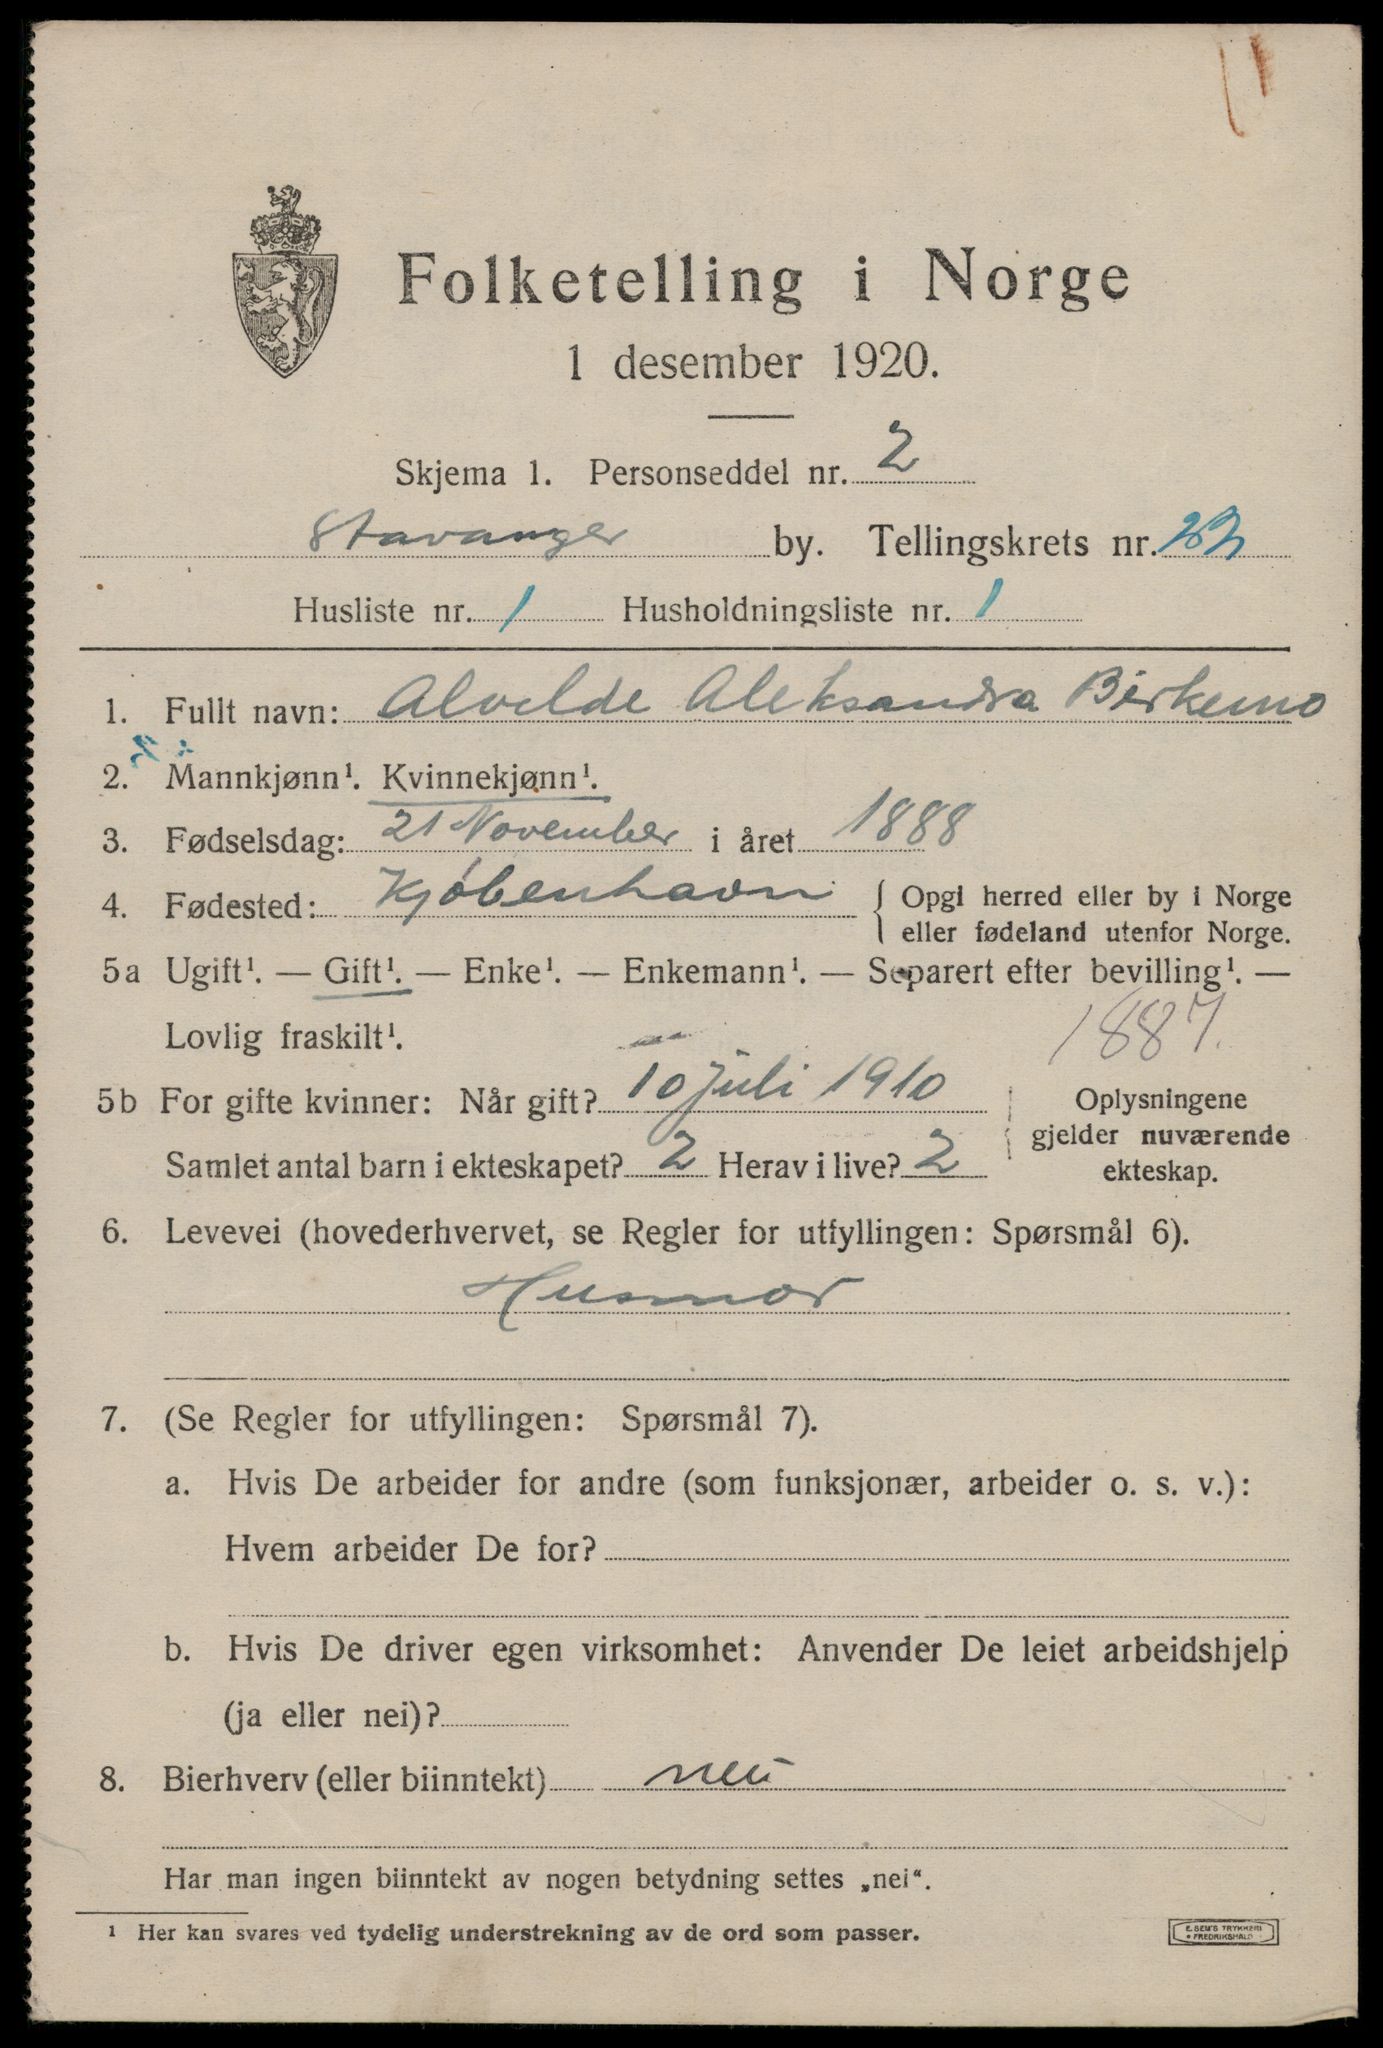 Folketelling i Norge
1 desember 1920.
Skjema 1. Personseddel nr. 2
Stavanger by. Tellingskrets nr.
Husliste nr. 1 Husholdningsliste nr. 1
1. Fullt navn: Alvilde Aleksandra Birkemo
2. Mannkjønn¹. Kvinnekjønn¹.
3. Fødselsdag: 21 November i året 1888
4. Fødested: Kjöbenhavn { Opgi herred eller by i Norge
eller fødeland utenfor Norge.
5a Ugift¹. — Gift¹. — Enke¹. — Enkemann¹. — Separert efter bevilling¹. —
Lovlig fraskilt¹.
1887.
5b For gifte kvinner: Når gift? 10 juli 1910
Samlet antal barn i ekteskapet? 2 Herav i live? 2
Oplysningene
gjelder nuværende
ekteskap.
6. Levevei (hovederhvervet, se Regler for utfyllingen: Spørsmål 6).
Husmor
7. (Se Regler for utfyllingen: Spørsmål 7).
a. Hvis De arbeider for andre (som funksjonær, arbeider o. s. v.):
Hvem arbeider De for?
b. Hvis De driver egen virksomhet: Anvender De leiet arbeidshjelp
(ja eller nei)?
8. Bierhverv (eller biinntekt) nei
Har man ingen biinntekt av nogen betydning settes „nei“.
¹ Her kan svares ved tydelig understrekning av de ord som passer.
E. SEM'S TRYKKERI
• FREDRIKSHALD •